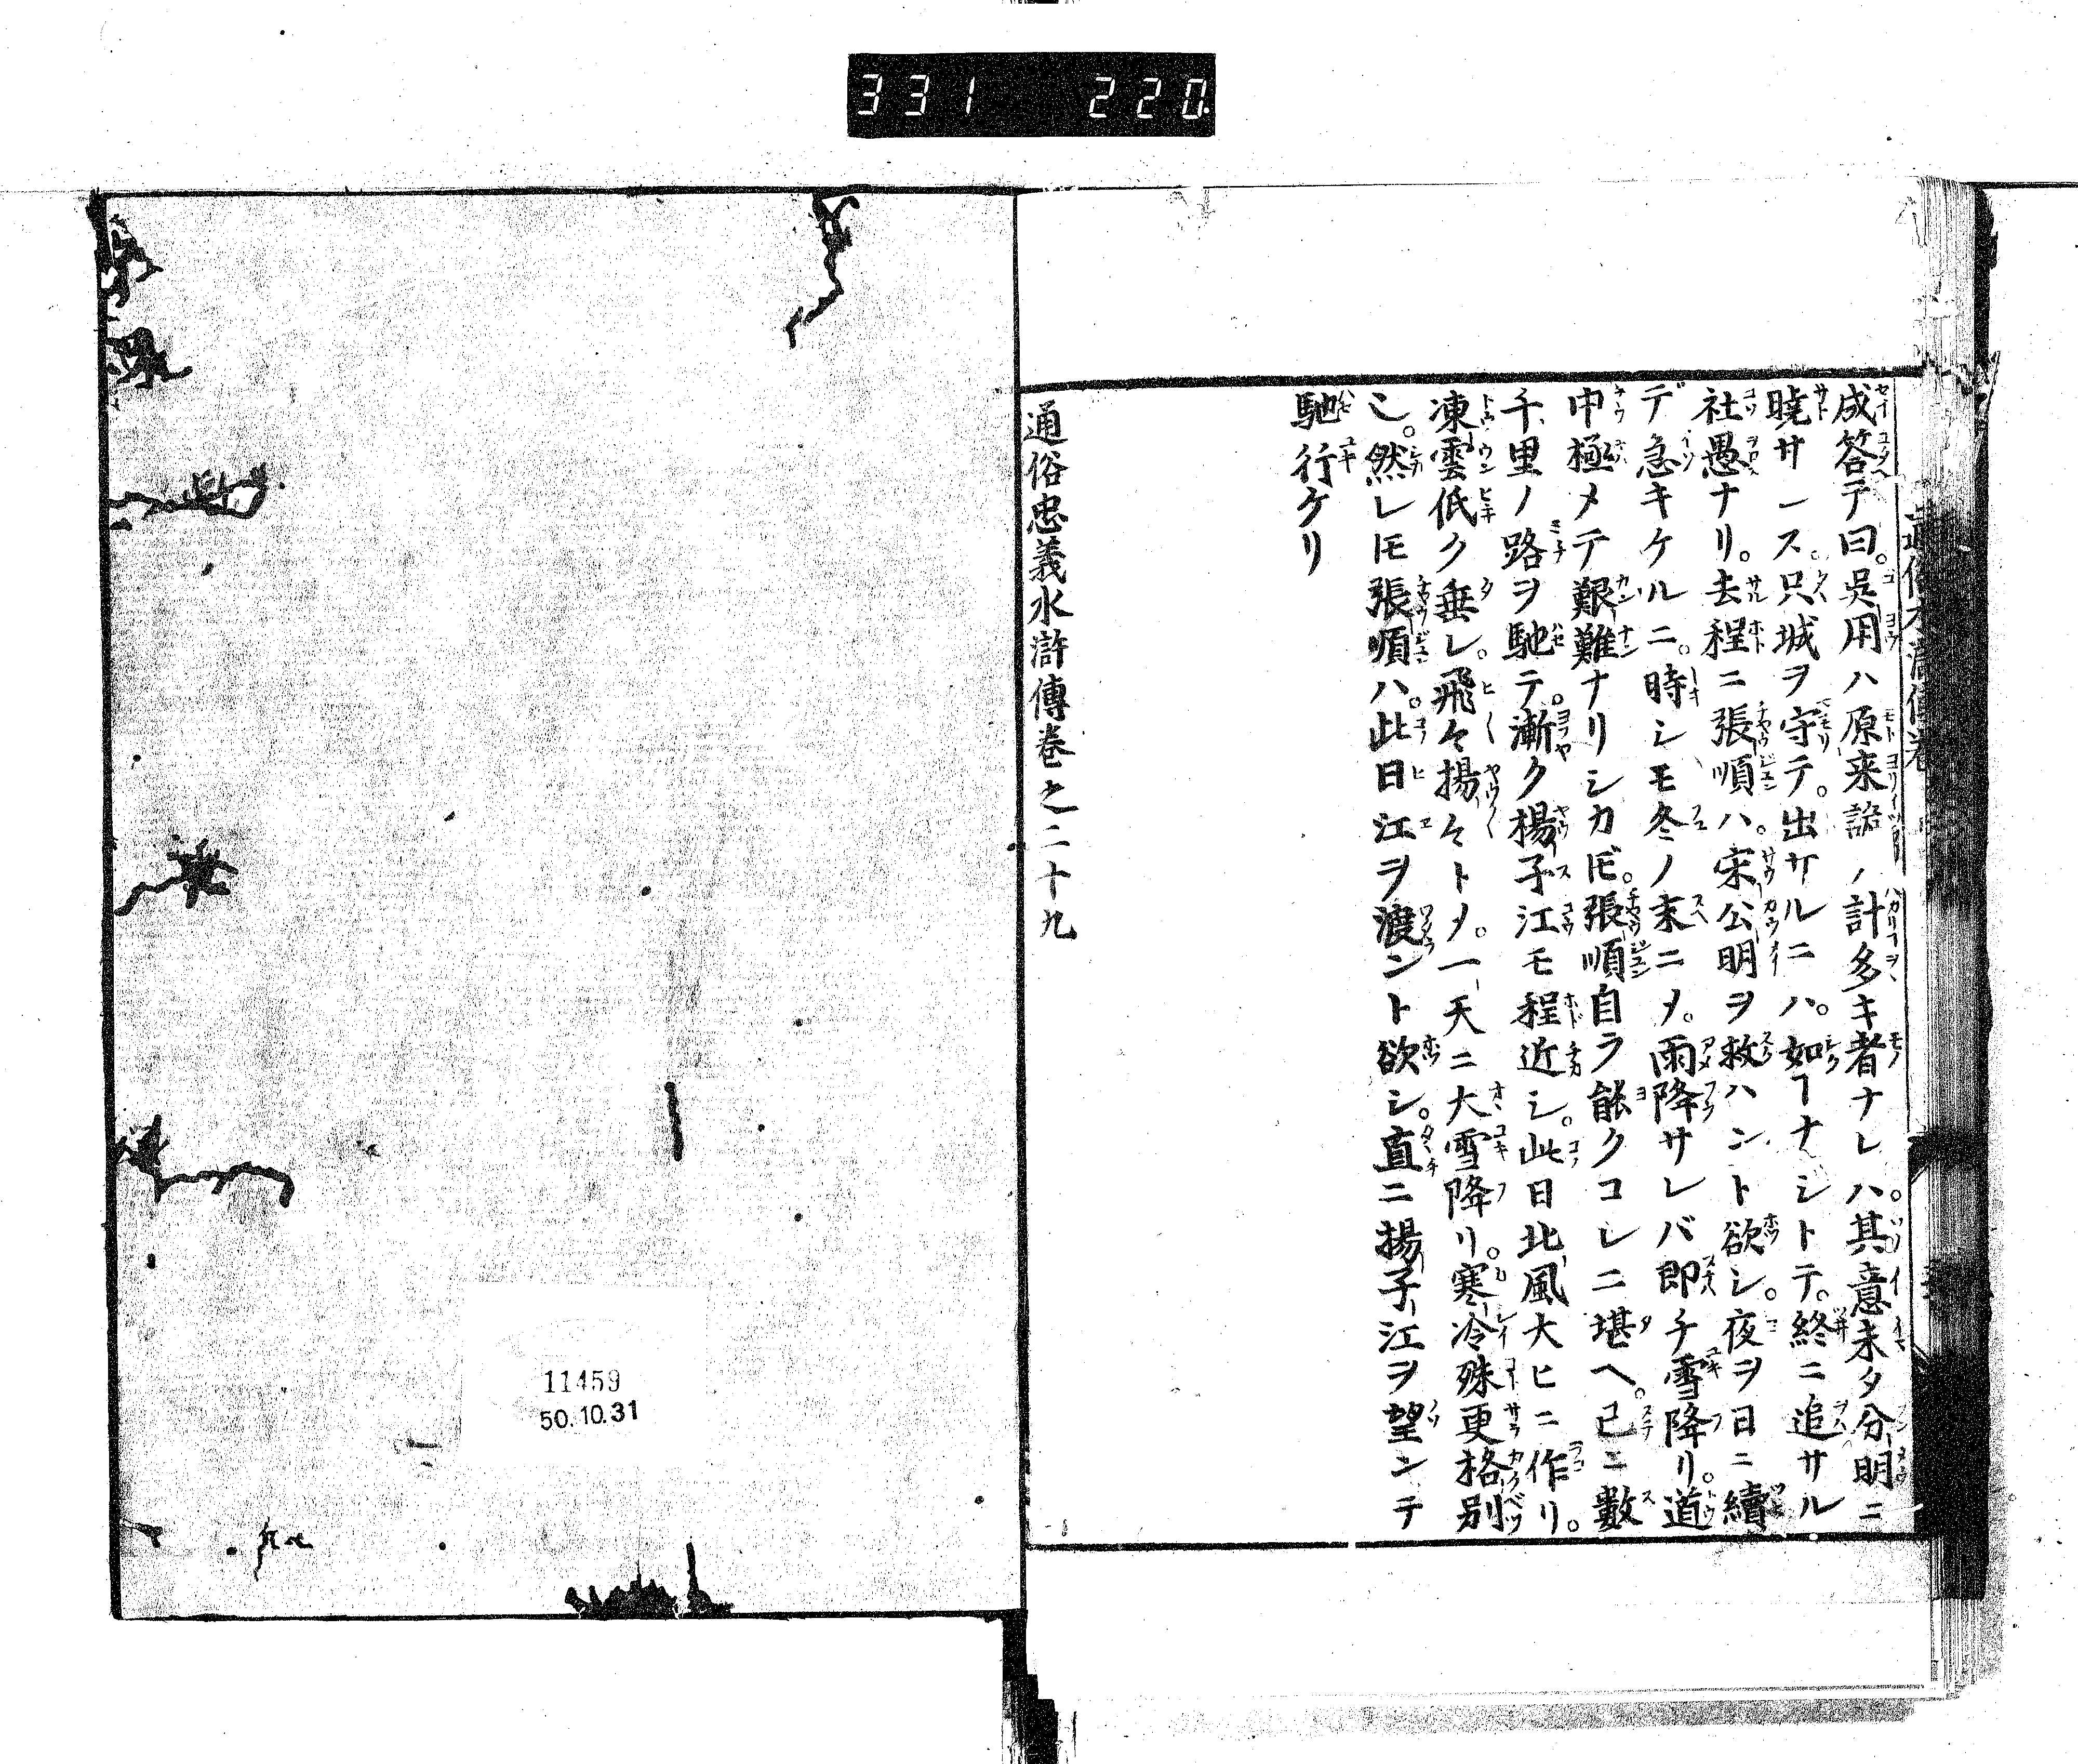 331 220
成答テ曰。吳用ハ原来詭ノ計多キ者ナレハ。其意未タ分明ニ
曉サヽス。只城ヲ守テ。出サルニハ。如ヿナシトテ。終ニ追サル
社愚ナリ。去程ニ張順ハ。宋公明ヲ救ハント欲シ。夜ヲ日ニ續
デ急キケルニ。時シモ冬ノ末ニメ。雨降サレバ即チ雪降リ。道
中極メテ艱難ナリシカ𪜈。張順自ラ能クコレニ堪ヘ。已ニ數
千里ノ路ヲ馳テ。漸ク楊子江モ程近シ。此日北風大ヒニ作リ。
凍雲低ク垂レ。飛々揚々トメ。一天ニ大雪降リ。寒冷殊更格別
シ。然レ𪜈張順ハ。此日江ヲ渡ント欲シ。直ニ揚子江ヲ望ンテ
馳行ケリ
通俗忠義水滸傳卷之二十九
11459
50.10.31